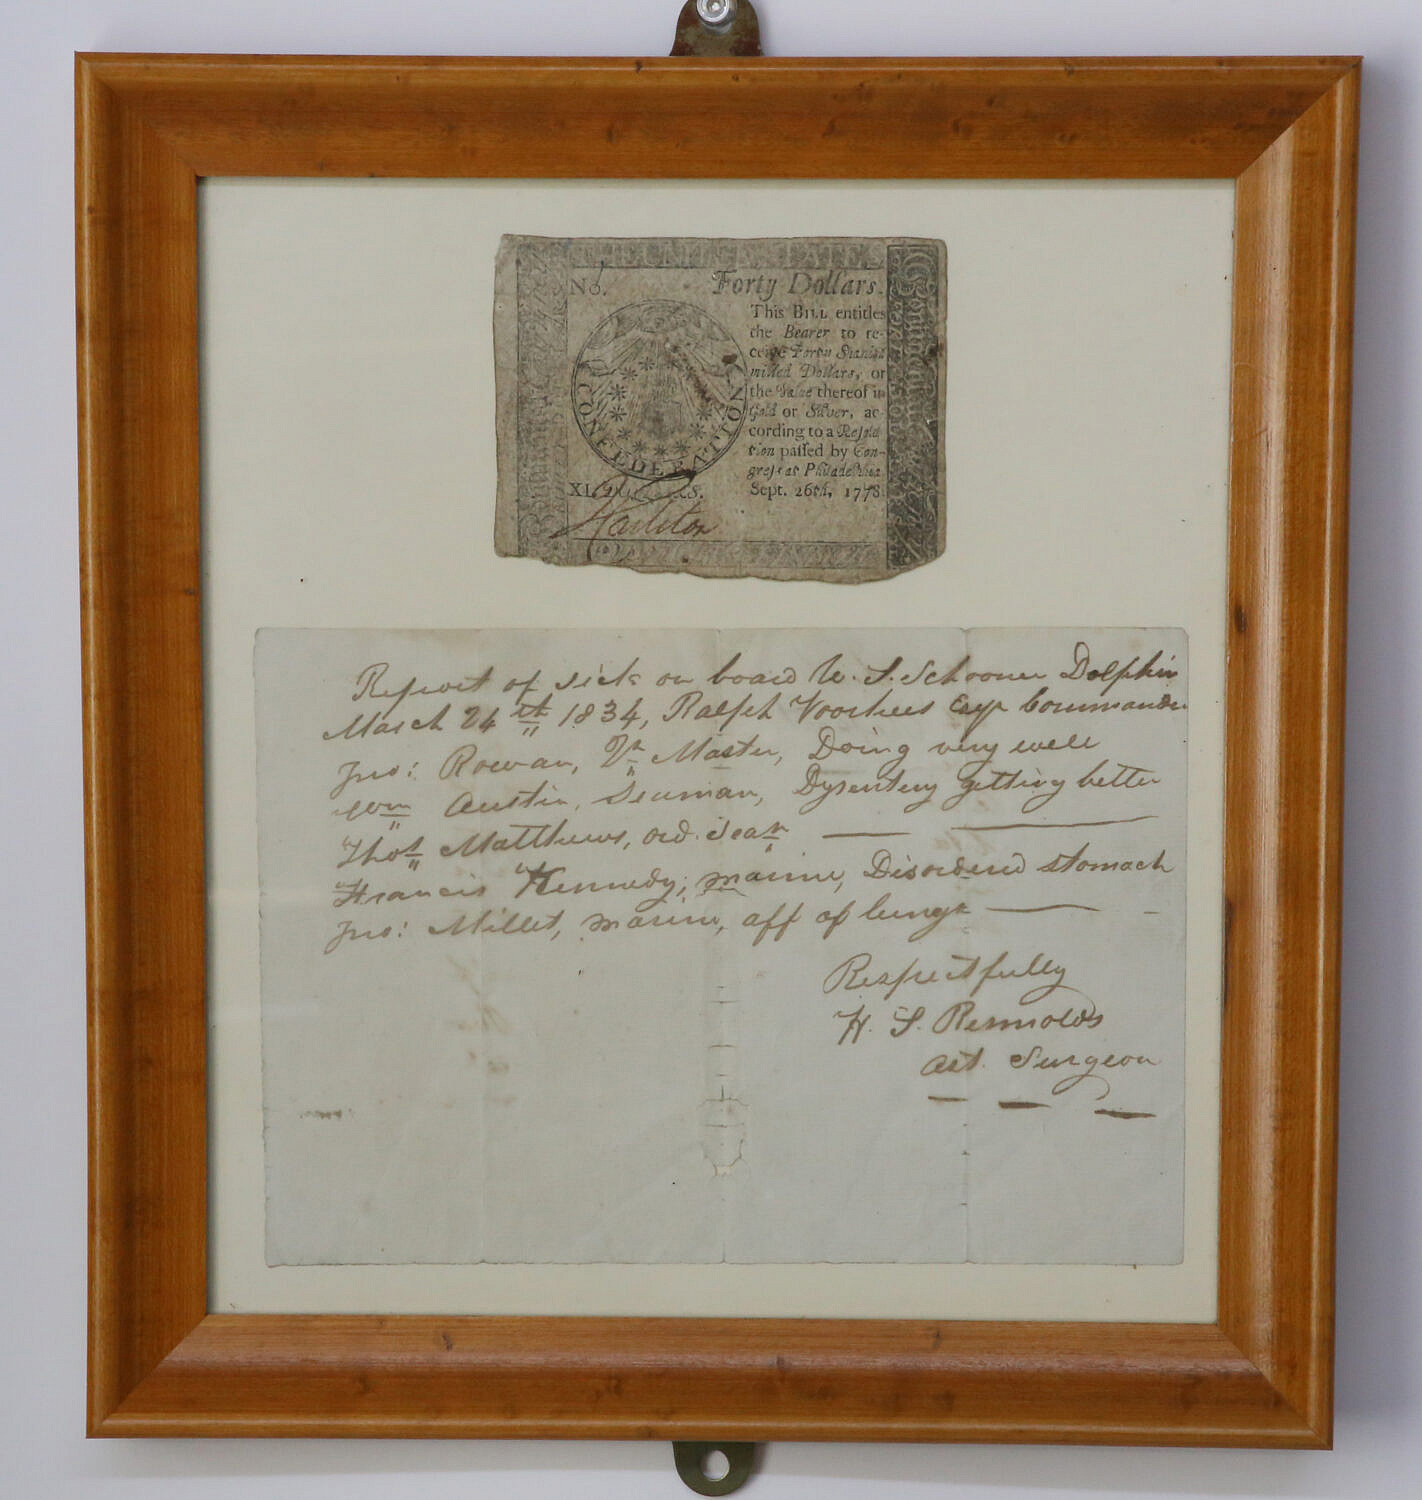 THE UNITED STATES
No. Forty Dollars.
This BILL entitles
the Bearer to re-
ceive Forty Spanish
milled Dollars, or
the Value thereof in
Gold or Silver, ac-
cording to a Resolu
tion passed by Con-
gress at Philadelphia
Sept. 26th, 1778.
CONFEDERATION
XL
Report of sick on board U. S. Schooner Dolphin
March 24th 1834, Ralph Voorhees Esqr Commander
Jno: Rowan, Qr Master, Doing very well
Wm Austin, Seaman, Dysentery getting better
Thos Matthews, ord. Sean
Francis Kennedy, marine, Disordered stomach
Jno: Millet, marine, aff of lungs
Respectfully
H. S. Rennolds
Ast. Surgeon